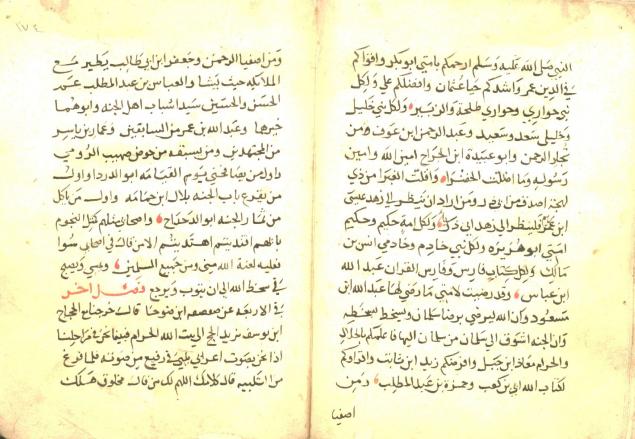 النبي صلى الله عليه وسلم ارحمكم بامتي ابو بكر واقواكم
في الدين عمر واشدكم حيا عثمان وافضلكم علي ولكل
نبي حواري وحواري طلحة والزبير ولكل نبي خليل
وخليلي سعد وسعيد وعبد الرحمن ابن عوف ومن
تجار الرحمن وابو عبيدة ابن الجراح امين الله وامين
رسوله وما اظلت الخضرا ولا اقلت الغبرا من ذي
لهجة اصدق من ابي ذر ومن اراد ان ينظر الى زهد عيسى
ابن مريم فلينظر الى زهد ابي ذر ولكل امة حكيم وحكيم
امتي ابو هريرة ولكل نبي خادم وخادمي انس بن
مالك ولكل كتاب فارس وفارس القران عبد الله
ابن عباس وقد رضيت لامتي ما رضي لها عبد الله ابن
مسعود وان الله ليرضى برضا سلمان ويسخط بسخطه
وان الجنة اشوق الى سلمان من سلمان اليها فاعلمكم بالحلال
والحرام معاذ ابن جبل وافرضكم زيد ابن ثابت واقراكم
لكتاب الله ابي بن كعب وحمزة بن عبد المطلب ومن
اصفيا
١٧٤
ومن اصفيا الرحمن وجعفر ابن ابي طالب يطير مع
الملائكة حيث يشا والعباس بن عبد المطلب عمي
الحسن والحسين سيدا شباب اهل الجنة وابوهما
خير منهما وعبد الله بن عمر من السابقين وعمار بن ياسر
من المجتهدين ومن يسبقه من حوض صهيب الرومي
واول من يصافحني يوم القيامة ابو الدردا واول
من يقرع باب الجنة بلال ابن حمامة واول من ياكل
من ثمار الجنة ابو الدحداح واصحابي مثلهم كمثل النجوم
بايهم اقتديتم اهتديتم الا من قال في اصحابي سوا
فعليه لعنة الله مني ومن جميع المسلمين ويمسي ويصبح
في سخط الله الى ان يتوب ويرجع فصل اخر
قال خرجنا مع الحجاج
ابن يوسف نريد الحج الى بيت الله الحرام فبينما نحن في مراحلنا
اذا نحن بصوت اعرابي يلبي في رفيع من صوته فلما فرغ
من التلبية قال كلامك اللهم لك من قال مخلوق هلك